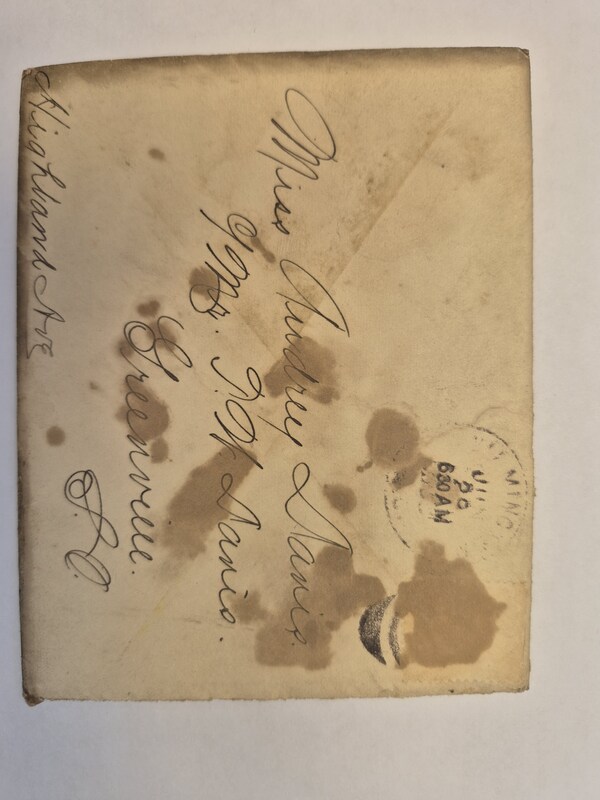 Miss Audrey Davis.
c/o Mr. T. W Davis.
Greenville.
S. C.
Highland Ave
MING
JUN
30
630 AM